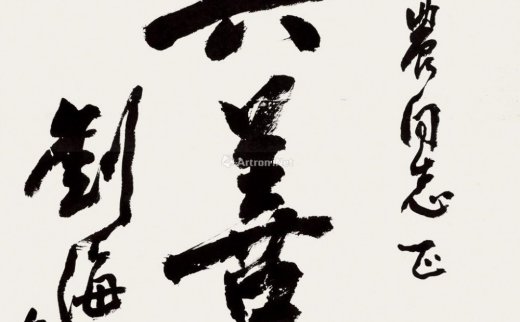 農同志正
善
劉海
Artron.Net